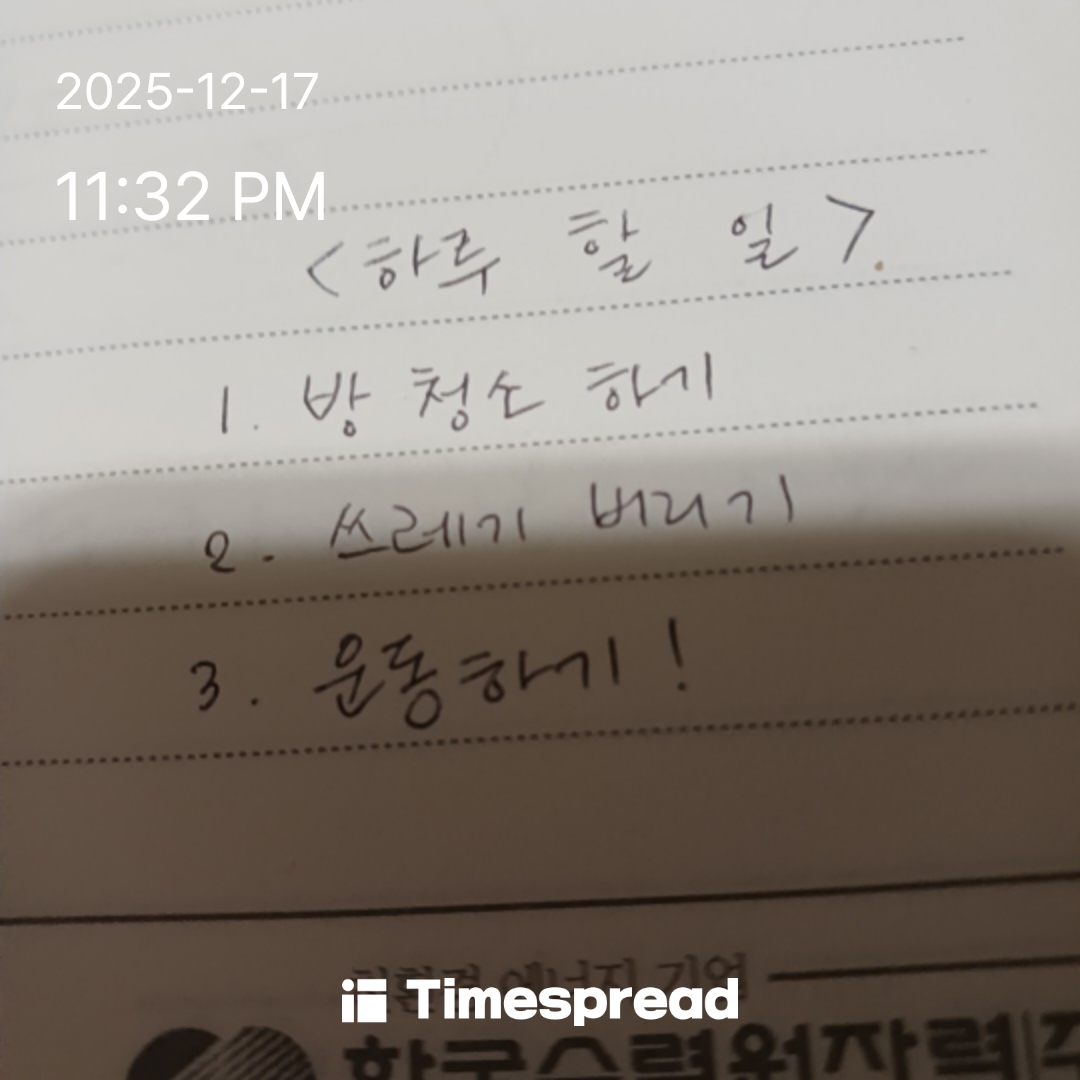 2025-12-17
11:32 PM
<하루 할 일>
1. 방 청소 하기
2. 쓰레기 버리기
3. 운동하기!
친환경 에너지 기업
Timespread
한국수력원자력